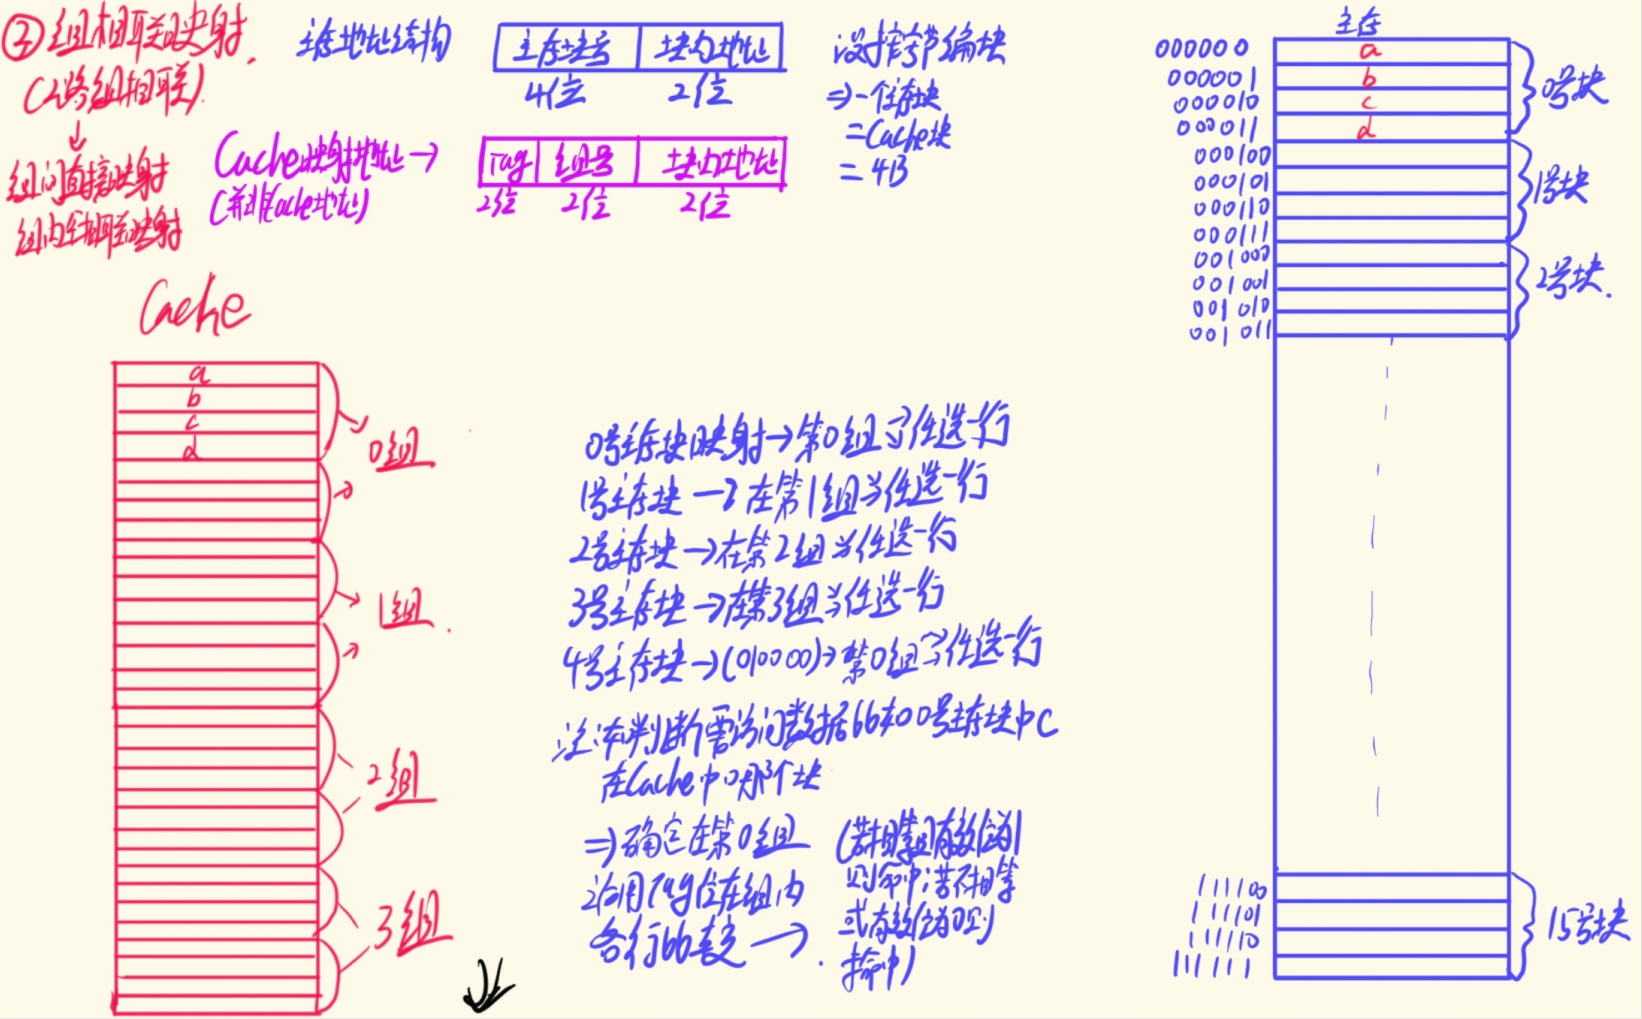 ② 组相联映射.
(2路组相联)
↓
组间直接映射
组内全相联映射
主存地址结构
主存块号 块内地址
4位 2位
设按字节编块
⇒一个主存块
=Cache块
=4B
Cache映射地址→
(并非Cache地址)
Tag 组号 块内地址
2位 2位 2位
Cache
a
b
c
d
0组
1组
2组
3组
0号主存块映射→第0组当任选一行
1号主存块→在第1组当任选一行
2号主存块→在第2组当任选一行
3号主存块→在第3组当任选一行
4号主存块→(010000)→第0组当任选一行
注:在判断需访问数据比如0号主存块中C
在Cache中哪个块
⇒1)确定在第0组
2)用Tag位在组内
各行比较→
(若相等且有效位为1
则命中;若不相等
或有效位为0则
不命中)
主存
000000 a
000001 b
000010 c
000011 d
0号块
000100
000101
000110
000111
1号块
001000
001001
001010
001011
2号块.
111100
111101
111110
111111
15号块